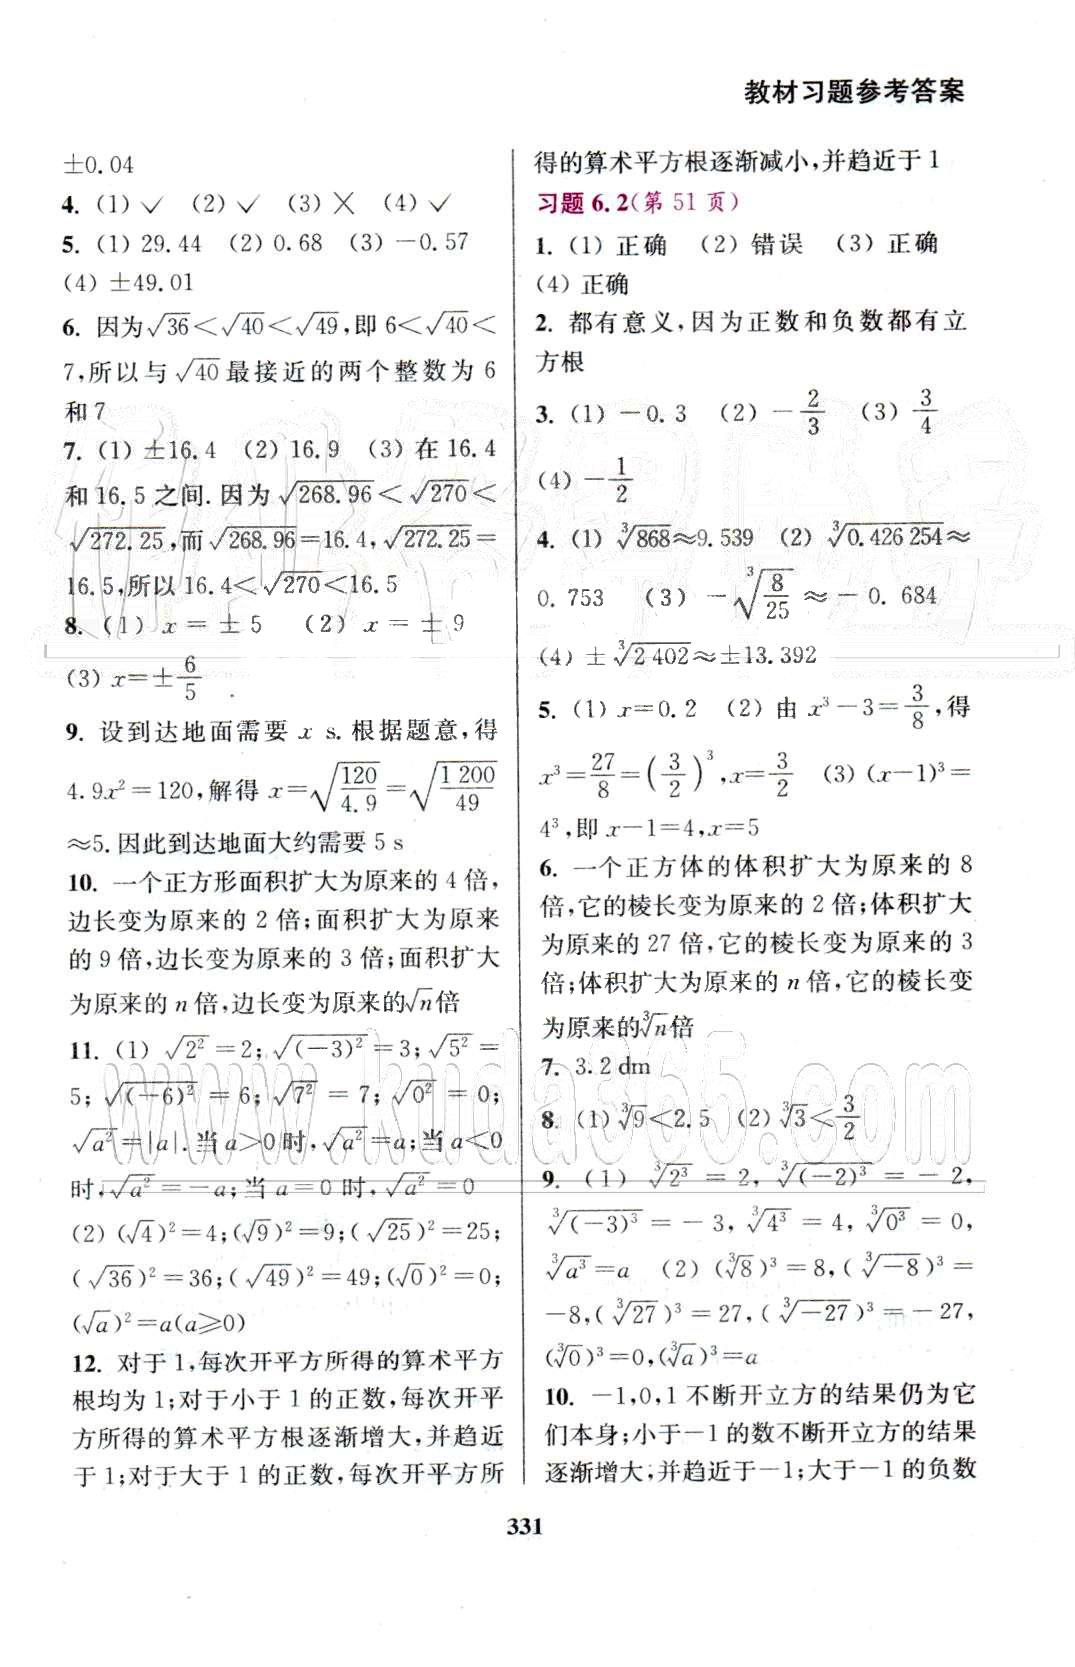 教材习题参考答案
±0.04
4. (1)✓ (2)✓ (3)╳ (4)✓
5. (1)29.44 (2)0.68 (3)-0.57
(4)±49.01
6. 因为√36<√40<√49,即6<√40<
7,所以与√40最接近的两个整数为6
和7
7. (1)±16.4 (2)16.9 (3)在16.4
和16.5之间.因为√268.96<√270<
√272.25,而√268.96=16.4,√272.25=
16.5,所以16.4<√270<16.5
8. (1)x=±5 (2)x=±9
(3)x=±6/5
9. 设到达地面需要 x s.根据题意,得
4.9x²=120,解得x=√(120/4.9)=√(1 200/49)
≈5.因此到达地面大约需要5 s
10. 一个正方形面积扩大为原来的4倍,
边长变为原来的2倍;面积扩大为原来
的9倍,边长变为原来的3倍;面积扩大
为原来的n倍,边长变为原来的√n倍
11. (1)√2²=2;√(-3)²=3;√5²=
5;√(-6)²=6;√7²=7;√0²=0;
√a²=|a|.当a>0时,√a²=a;当a<0
时,√a²=-a;当a=0时,√a²=0
(2)(√4)²=4;(√9)²=9;(√25)²=25;
(√36)²=36;(√49)²=49;(√0)²=0;
(√a)²=a(a≥0)
12. 对于1,每次开平方所得的算术平方
根均为1;对于小于1的正数,每次开平
方所得的算术平方根逐渐增大,并趋近
于1;对于大于1的正数,每次开平方所
得的算术平方根逐渐减小,并趋近于1
习题6.2(第51页)
1. (1)正确 (2)错误 (3)正确
(4)正确
2. 都有意义,因为正数和负数都有立
方根
3. (1)-0.3 (2)-2/3 (3)3/4
(4)-1/2
4. (1)∛868≈9.539 (2)∛0.426 254≈
0.753 (3)-∛(8/25)≈-0.684
(4)±∛2 402≈±13.392
5. (1)x=0.2 (2)由x³-3=3/8,得
x³=27/8=(3/2)³,x=3/2 (3)(x-1)³=
4³,即x-1=4,x=5
6. 一个正方体的体积扩大为原来的8
倍,它的棱长变为原来的2倍;体积扩大
为原来的27倍,它的棱长变为原来的3
倍;体积扩大为原来的n倍,它的棱长变
为原来的∛n倍
7. 3.2 dm
8. (1)∛9<2.5 (2)∛3<3/2
9. (1)∛2³=2,∛(-2)³=-2,
∛(-3)³=-3,∛4³=4,∛0³=0,
∛a³=a (2)(∛8)³=8,(∛-8)³=
-8,(∛27)³=27,(∛-27)³=-27,
(∛0)³=0,(∛a)³=a
10. -1,0,1不断开立方的结果仍为它
们本身;小于-1的数不断开立方的结果
逐渐增大,并趋近于-1;大于-1的负数
331